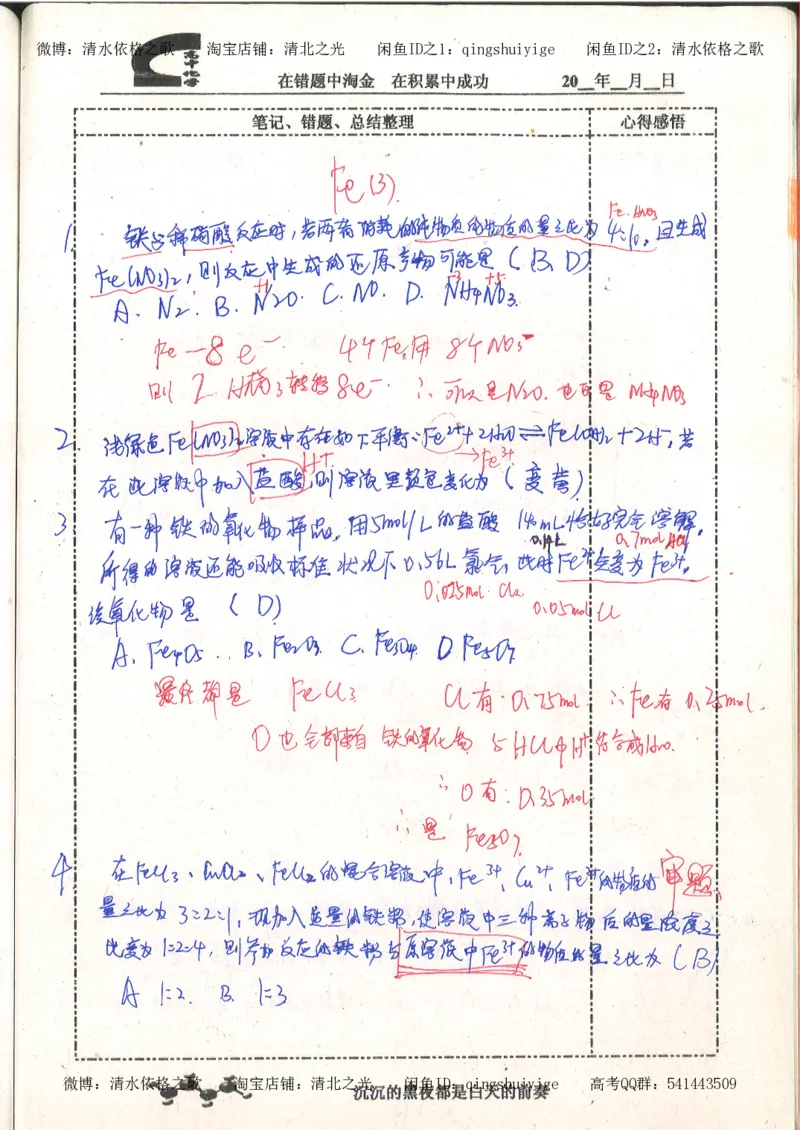 微博：清水依格之歌 淘宝店铺：清北之光 闲鱼ID之1：qingshuiyige 闲鱼ID之2：清水依格之歌
高中化学
在错题中淘金 在积累中成功 20__年__月__日
笔记、错题、总结整理 心得感悟
Fe(3).
Fe. HNO3
1. 铁与稀硝酸反应时,若两者消耗的纯物质的物质的量之比为4:10,且生成
Fe(NO3)2,则反应中生成的还原产物可能是(B、D)
+1 -3 +5
A. N2. B. N2O. C. NO. D. NH4NO3.
Fe -8e- 4个Fe用 8个NO3-
则 2 转移8e-. ∴可以是N2O. 也可是 NH4NO3
2. 浅绿色Fe(NO3)2溶液中存在如下平衡:Fe2++2H2O⇌Fe(OH)2+2H+,若
H+ →Fe3+
在此溶液中加入盐酸,则溶液里颜色变化为(变黄)
3 有一种铁的氧化物样品,用5mol/L的盐酸 140mL恰好完全溶解,
0.14L 0.7mol HCl
所得的溶液还能吸收标准状况下0.56L氯气,此时Fe2+全变为Fe3+,
0.025mol Cl2. 0.05mol Cl
该氧化物是 (D)
A. Fe4O5 .. B. Fe2O3. C. Fe3O4 D Fe5O7
最终都是 FeCl3 Cl有:0.75mol. ∴Fe有 0.25mol.
O也全部来自 铁的氧化物 与HCl中H+结合成H2O.
∴O有:0.35mol
∴是 Fe5O7.
4. 在FeCl3、CuCl2、FeCl2的混合溶液中,Fe3+、Cu2+、Fe2+的物质的 审题,
量之比为3:2:1,现加入适量的铁粉,使溶液中三种离子物质的量浓度之
比变为1:2:4,则参加反应的铁粉与原溶液中Fe3+的物质的量之比为(B)
A 1:2. B. 1:3
微博：清水依格之歌 淘宝店铺：清北之光 闲鱼ID：qingshuiyige 高考QQ群：541443509
沉沉的黑夜都是白天的前奏